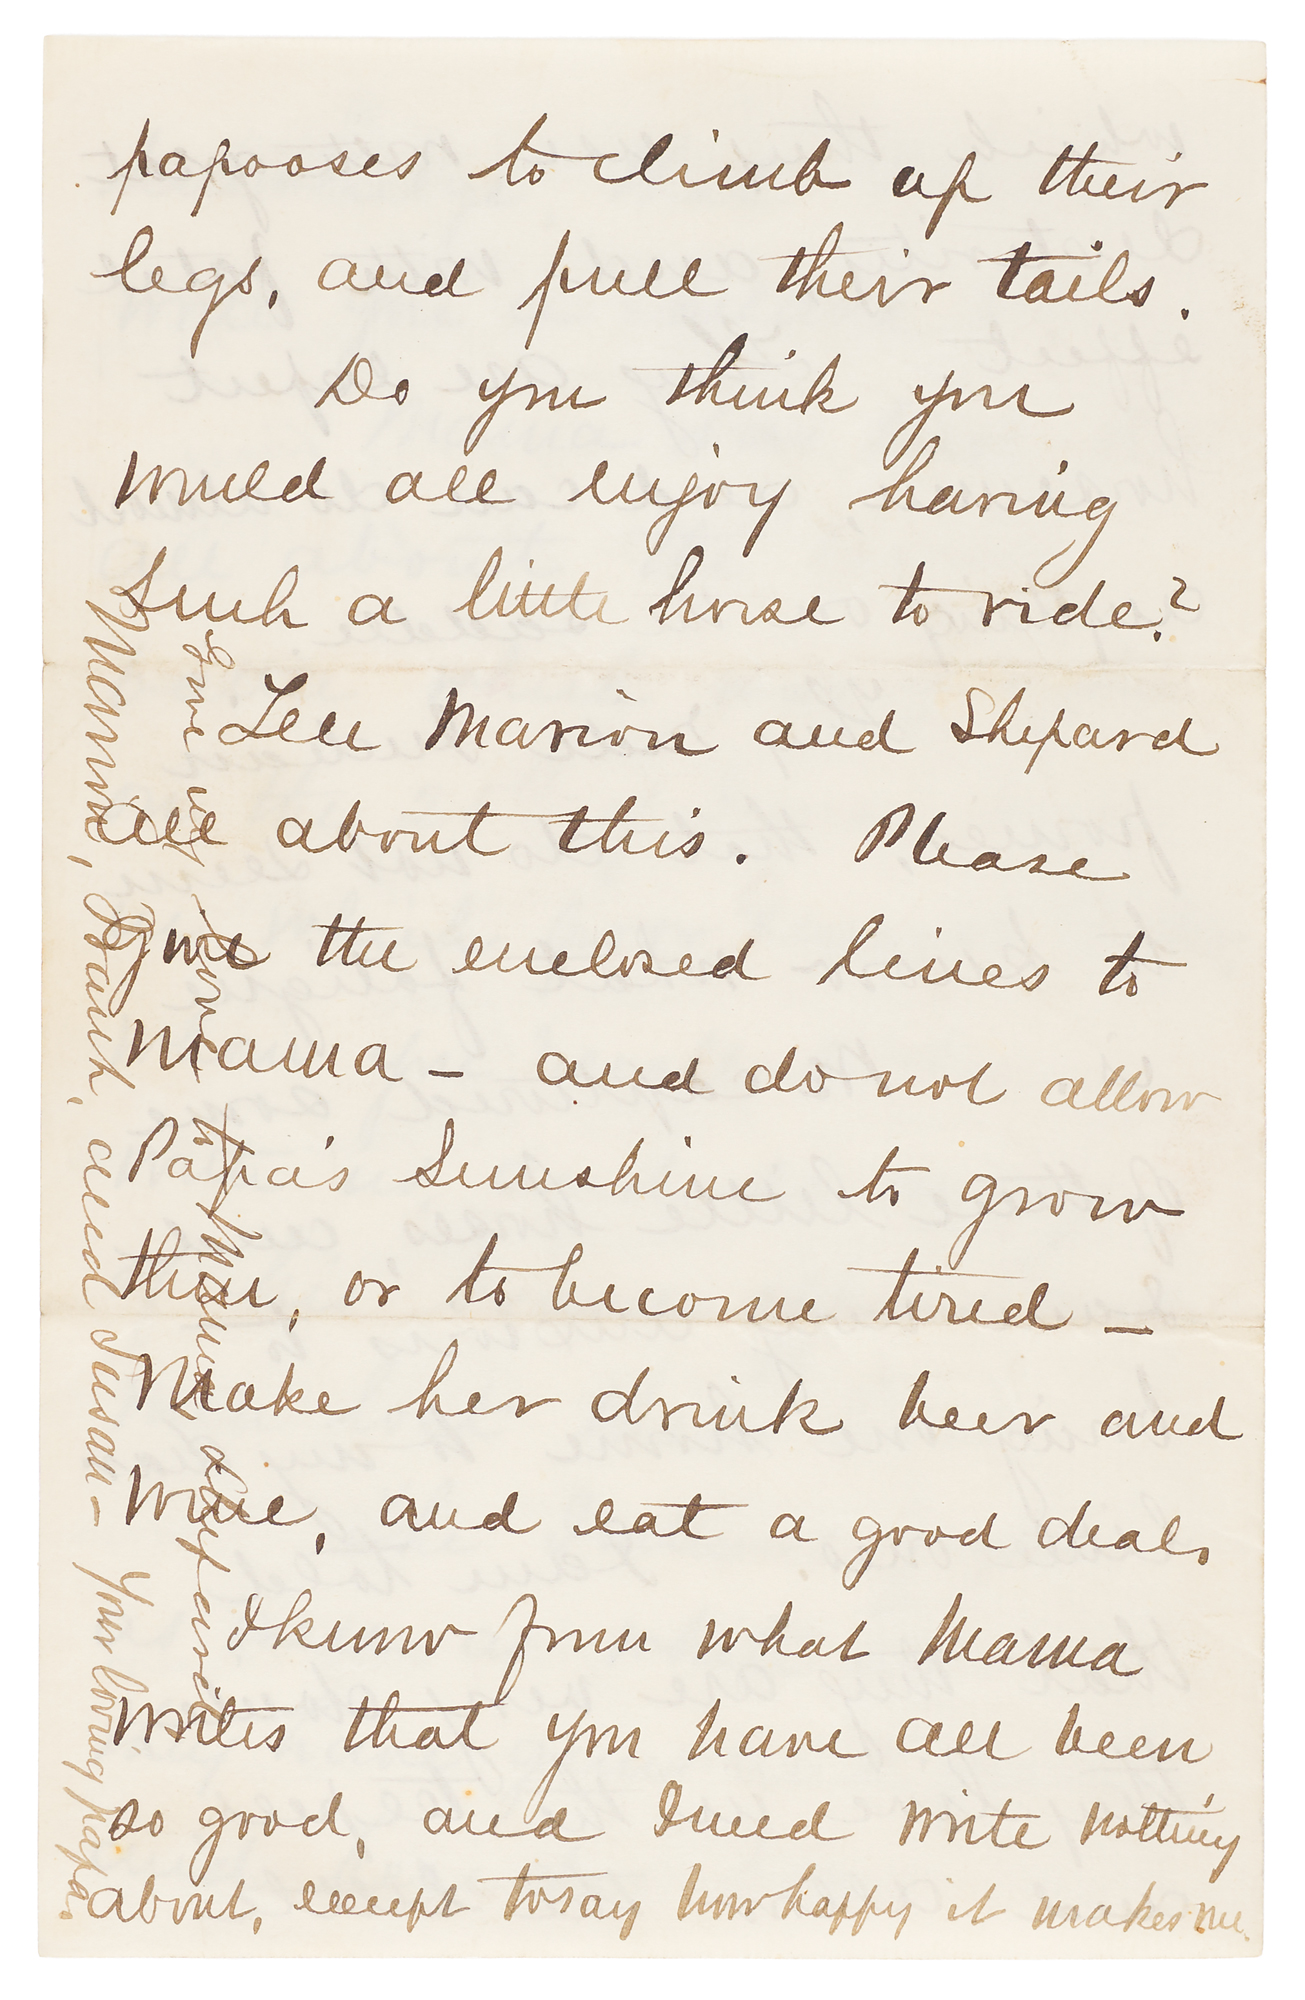 papooses to climb up their
legs, and pull their tails.
Do you think you
would all enjoy having
such a little horse to ride?
Tell Marion and Shepard
all about this. Please
give the enclosed lines to
Mama – and do not allow
Papa's Sunshine to grow
thin, or to become tired –
Make her drink beer and
wine, and eat a good deal.
I know from what Mama
writes that you have all been
so good, and I need write nothing
about, except to say how happy it makes me.
Give my love to Mama
Mamie, and Susan – Your loving papa.